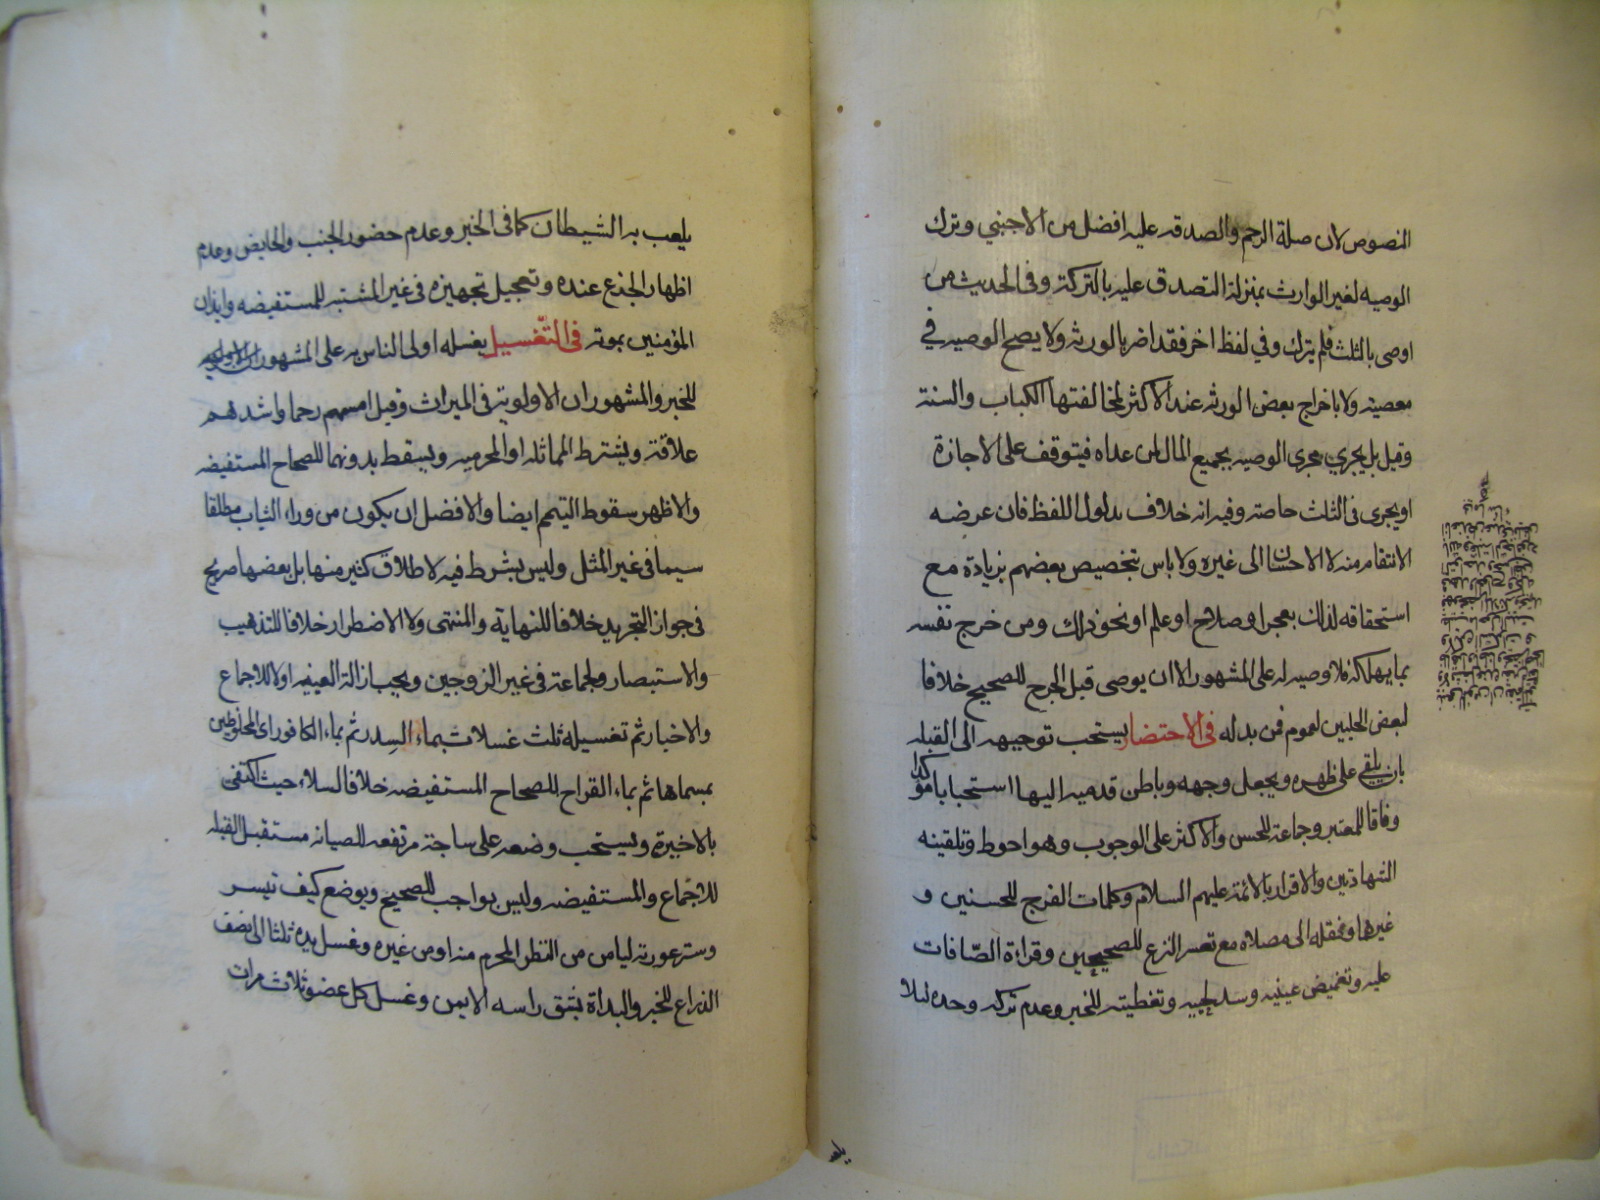 النصوص لان صلة الرحم والصدقه عليه افضل من الاجنبي وترك
الوصيه لغير الوارث بمنزلة التصدق عليه بالتركة وفي الحديث من
اوصى بالثلث فلم يترك وفي لفظ اخر فقد اضر بالورثه ولا يصح الوصيه في
معصيته ولا باخراج بعض الورثه عند الاكثر لمخالفتها الكتاب والسنة
وقيل بل يجري مجرى الوصيه بجميع المال لمن عداه فيتوقف على الاجازة
او يجرى فى الثلث خاصته وفيه انه خلاف مدلول اللفظ فان عرضه
الانتقام منه لا الاحسان الى غيره ولا باس بتخصيص بعضهم بزيادة مع
استحقاقه لذلك بعجز او صلاح او علم او نحو ذلك ومن خرج نفسه
بما يهلكه فلا وصيه له على المشهور الا ان يوصى قبل الجرح للصحيح خلافا
لبعض الحلبين لعموم فمن بدله في الاحتضار يستحب توجيهه الى القبله
بان يلقى على ظهره ويجعل وجهه وباطن قدميه اليها استحبابا موكدا
وفاقا للمعتبر وجماعة للحسن والاكثر على الوجوب وهو احوط وتلقينه
الشهادتين والاقرار بالائمة عليهم السلام وكلمات الفرج للحسنين و
غيرها ونقله الى مصلاه مع تعسر النزع للصحيحين وقراءة الصّافات
عليه وتغميض عينيه وسد لحييه وتغطيته للخبر وعدم تركه وحده لئلا
يلعب به الشيطان كما في الخبر وعدم حضور الجنب والحايض وعدم
اظهار الجزع عنده وتعجيل تجهيزه فى غير المشتبه للمستفيضه وايذان
المؤمنين بموته فى التّغسيل يغسله اولى الناس به على المشهور
للخبر والمشهور ان الاولوية في الميراث وقيل امسهم رحما واشدهم
علاقة ويشترط المماثله او المحرميه ويسقط بدونهما للصحاح المستفيضه
والاظهر سقوط التيمم ايضا والافضل ان يكون من وراء الثياب مطلقا
سيما فى غير المثل وليس بشرط فيه لاطلاق كثير منها بل بعضها صريح
فى جواز التجريد خلافا للنهاية والمنتهى ولا الاضطرار خلافا للتذهيب
والاستبصار ولجماعة فى غير الزوجين ويجب ازالة العينيه اولا للاجماع
والاخبار ثم تغسيله ثلث غسلات بماء السدر ثم بماء الكافور اى المخلوطين
بمسماها ثم بماء القراح للصحاح المستفيضه خلافا لسلار حيث اكتفى
بالاخيرة ويستحب وضعه على ساجة مرتفعه للصيانه مستقبل القبله
للاجماع والمستفيضه وليس بواجب للصحيح ويوضع كيف تيسر
وستر عورته ليامن من النظر المحرم منه او من غيره وغسل يده ثلثا الى نصف
الذراع للخبر والبداة بشق راسه الايمن وغسل كل عضو ثلاث مرات